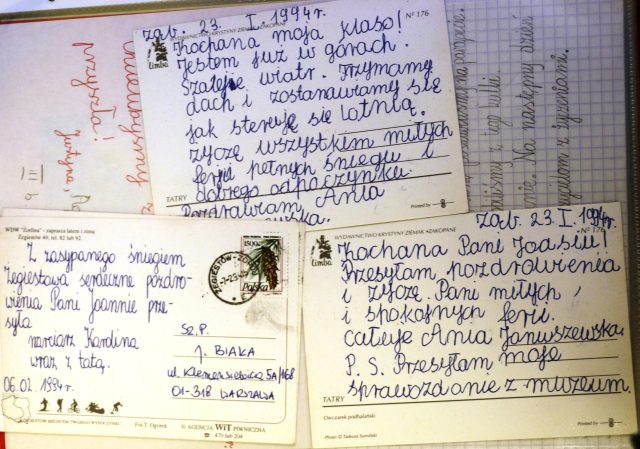 ząb. 23. I. 1994r.
WYDAWNICTWO KRYSTYNY ZIEMAK ZAKOPANE
Nº 176
limba
Kochana moja klaso!
Jestem już w górach.
Szaleje wiatr. Trzymamy
dach i zostanawiamy się
jak steruje się lotnią.
życzę wszystkim miłych
ferii pełnych śniegu i
dobrego odpoczynku.
Pozdrawiam Ania
TATRY
Printed by
przyszła!
Justyna,
Na następny dzień
z życzeniami.
WDW "Zorlina" - zaprasza latem i zimą
Żegiestów 49, tel. 82 lub 92.
Z zasypanego śniegiem
Żegiestowa serdeczne pozdro-
wienia Pani Joannie prze-
syła
narciarz Karolina
wraz z tatą.
06.02. 1994r.
ŻEGIESTÓW-ZDRÓJ
Polska
SZ.P.
J. BIAŁA
ul. Klemensiewicza 5A/168
01-318 WARSZAWA
Fot. T. Ogórek
© AGENCJA WiT PÓŁNICZNA
☎ 470 lub 204
ząb. 23.I. 1994r.
WYDAWNICTWO KRYSTYNY ZIEMAK ZAKOPANE
Nº 176
limba
Kochana Pani Joasiu!
Przesyłam pozdrowienia
i życzę Pani miłych
i spokojnych ferii.
całuje Ania Januszewska.
P. S. Przesyłam moje
sprawozdanie z muzeum.
TATRY
Owczarek podhalański
Photo © Tadeusz Sumiński
Printed by